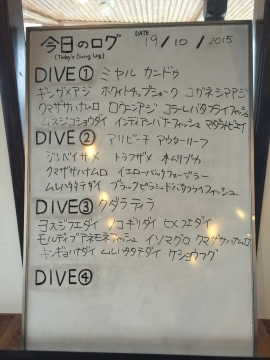 今日のログ
(Today's Diving Log)
DATE 19/10/2015
DIVE① ミヤル カンドゥ
ギンガメアジ ホワイトチップシャーク コガネシマアジ
クマザサハナムロ ロウニンアジ コラーレバタフライフィッシュ
ムスジコショウダイ インディアンバナーフィッシュ マダラトビエイ
DIVE② アリビーチ アウターリーフ
ジンベイザメ トラフザメ ネムリブカ
クマザサハナムロ イエローバックフュージラー
ムレハタタテダイ ブラックピラミッドバタフライフィッシュ
DIVE③ クダラティラ
ヨスジフエダイ ノコギリダイ ヒメフエダイ
モルディブアネモネフィッシュ イソマグロ クマザサハナムロ
キンギョハナダイ ムレハタタテダイ ケショウフグ
DIVE④